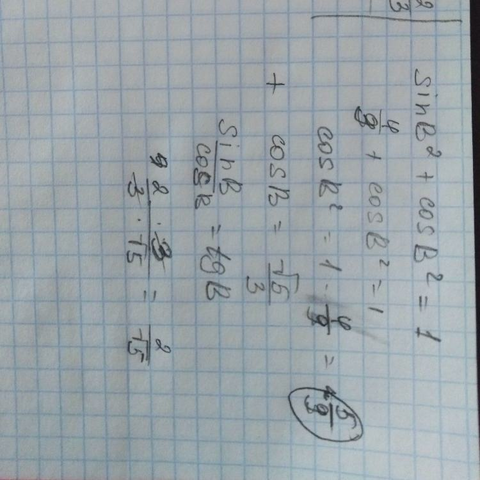 2
3
sinB² + cosB² = 1
4/9 + cosB² = 1
cosB² = 1 - 4/9 = 5/9
+ cosB = √5/3
sinB/cosB = tgB
2 · 3/3 · √5 = 2/√5